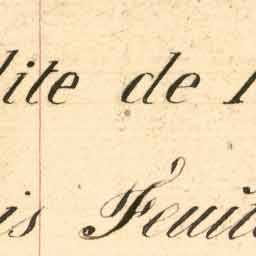 lite de
is Feuil